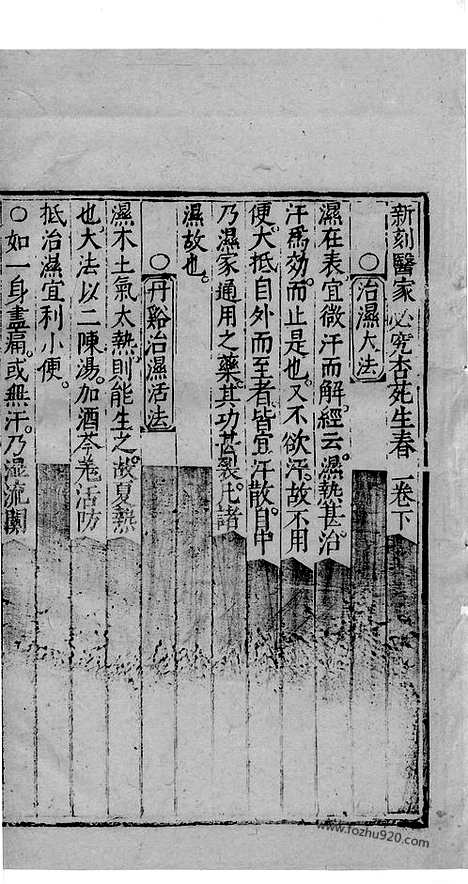 新刻醫家必究杏苑生春 一卷下
○治濕大法
濕在表宜微汗而解經云濕熱甚治
汗爲効而止是也又不欲汗故不用
便大抵自外而至者皆宜汗散自中
乃濕家通用之藥其功甚裂凡諸
濕故也
○丹谿治濕活法
濕本土氣太熱則能生之故夏熱
也大法以二陳湯加酒芩羌活防
抵治濕宜利小便
○如一身盡痛或無汗乃湿流關
www.fozhu920.com